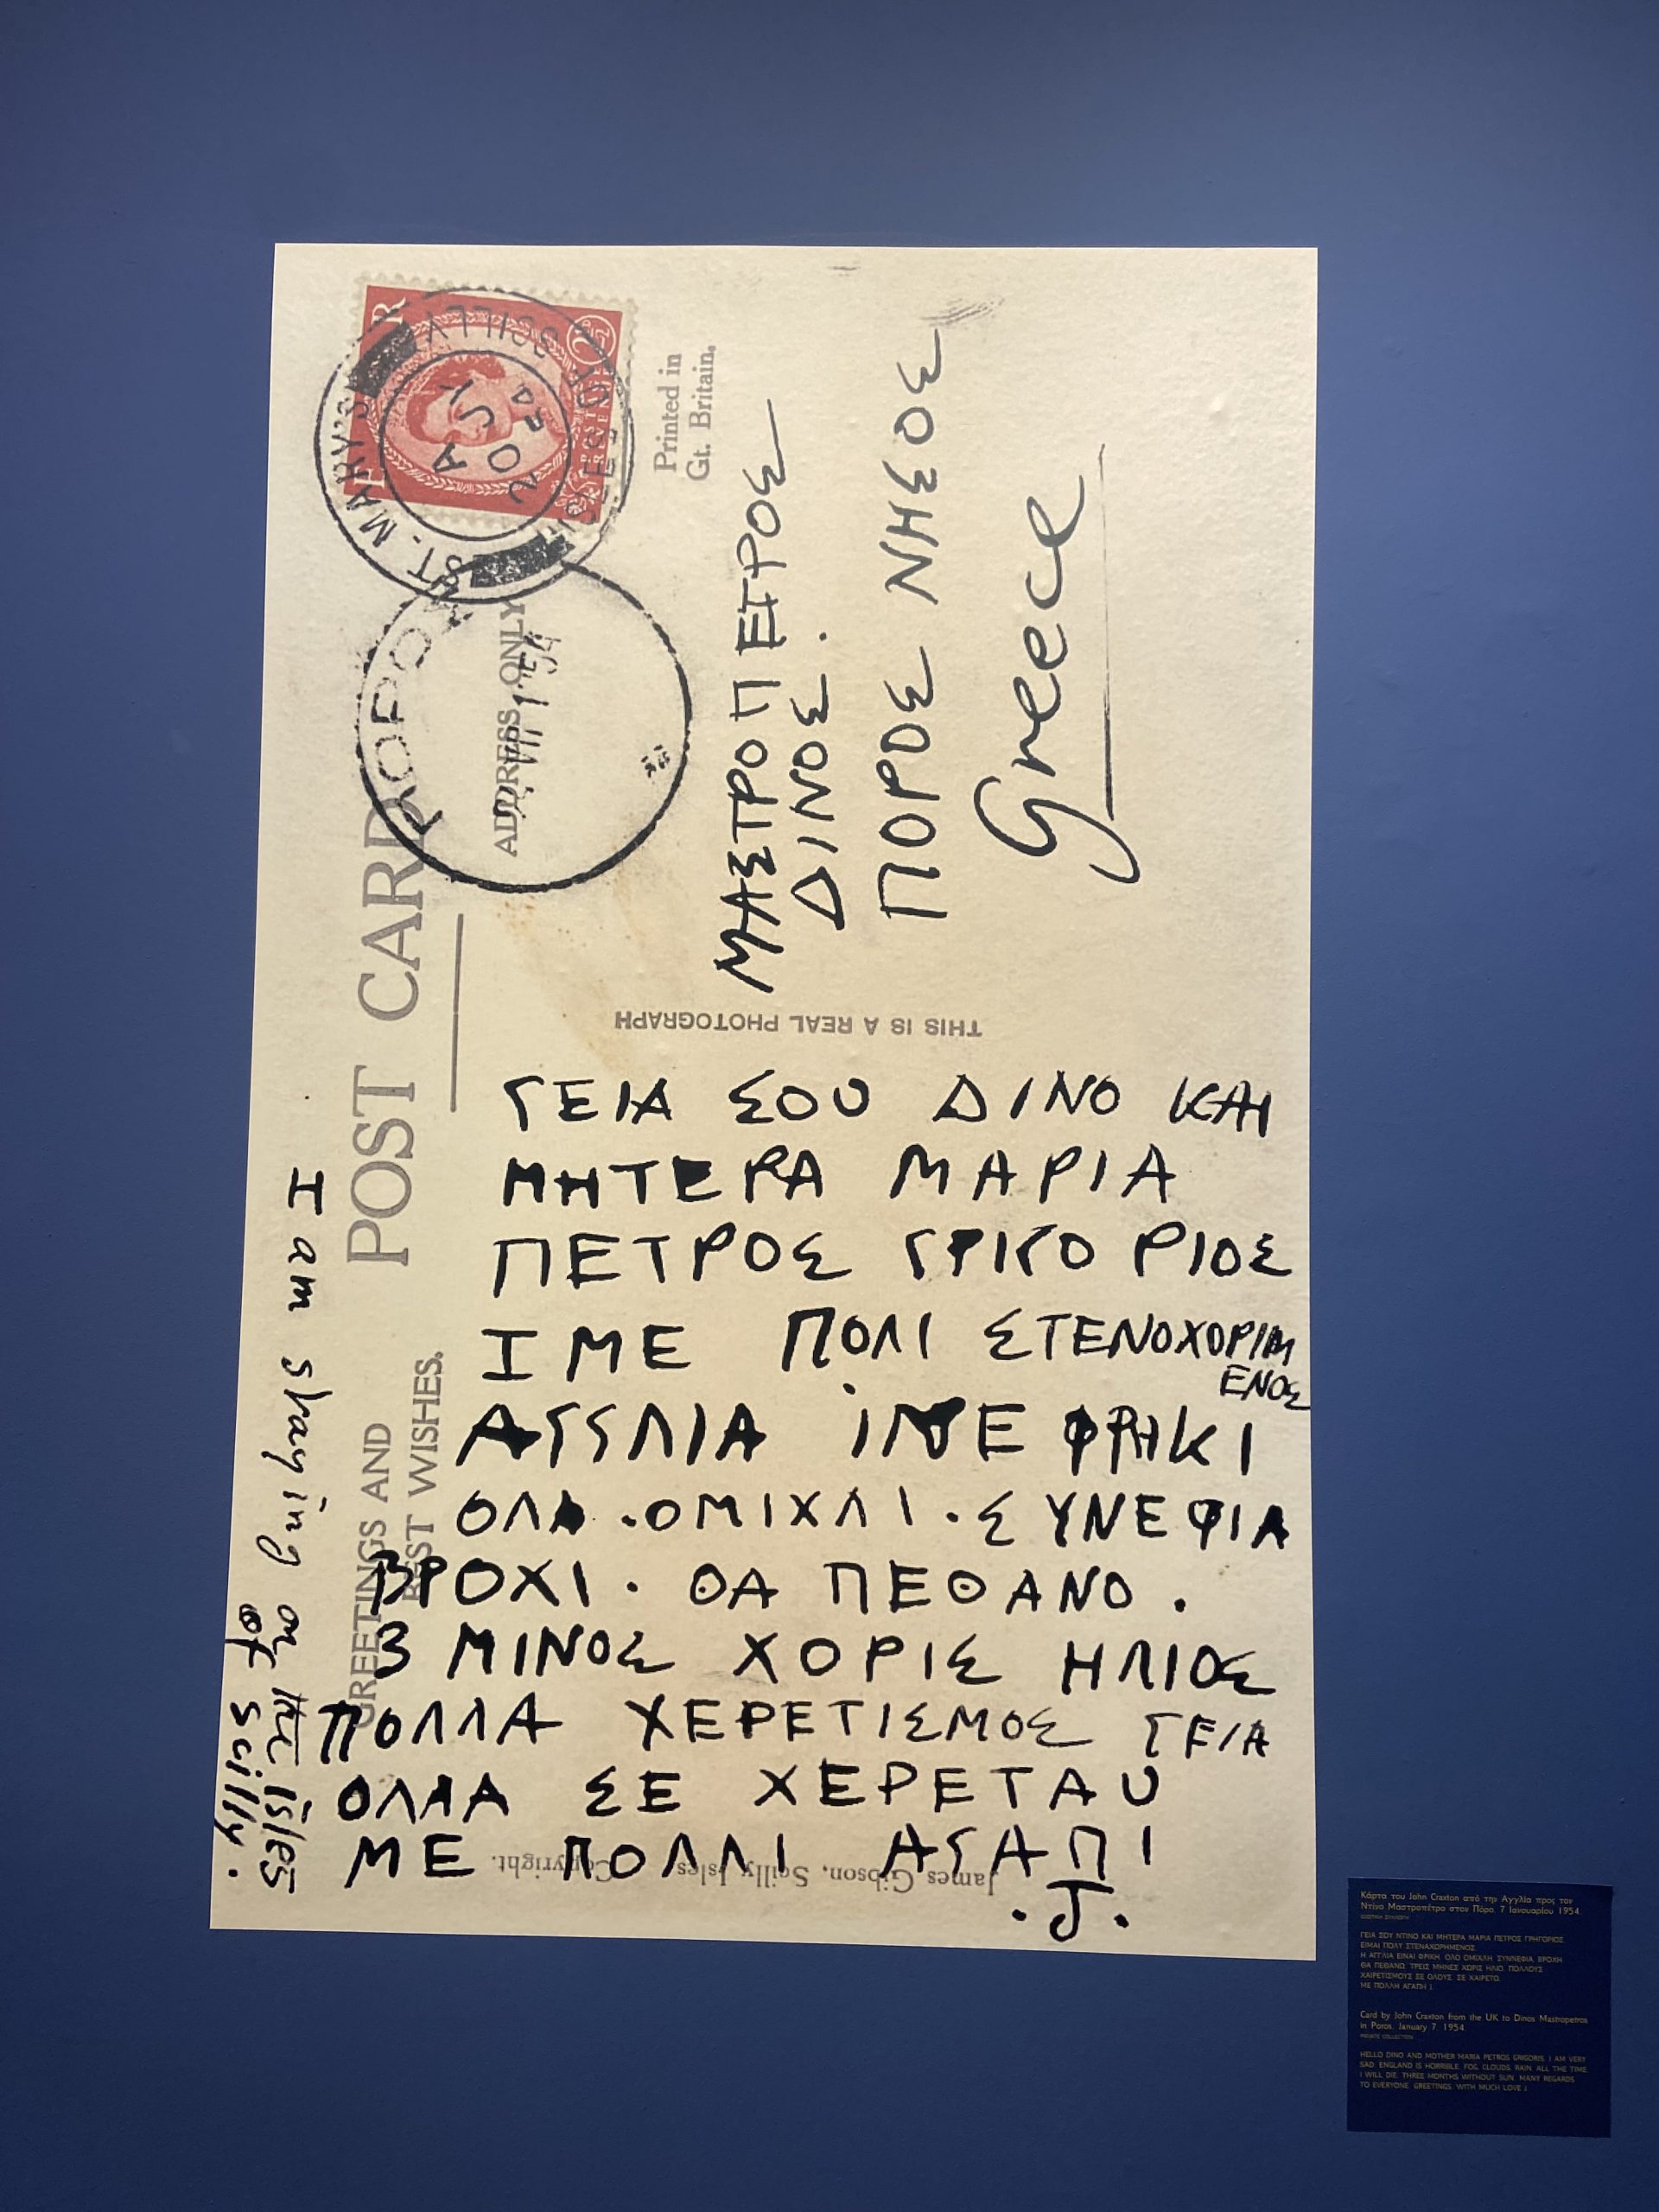 POST CARD
GREETINGS AND
BEST WISHES.
ADDRESS ONLY
Printed in
Gt. Britain.
ST. MARY'S
ISLES OF SCILLY
A
20 JY
54
ΜΑΣΤΡΟΠΕΤΡΟΣ
ΔΙΝΟΣ.
ΠΟΡΟΣ ΝΗΣΟΣ
Greece
THIS IS A REAL PHOTOGRAPH
ΓΕΙΑ ΣΟΥ ΔΙΝΟ ΚΑΙ
ΜΗΤΕΡΑ ΜΑΡΙΑ
ΠΕΤΡΟΣ ΓΡΙΓΟΡΙΟΣ
ΙΜΕ ΠΟΛΙ ΣΤΕΝΟΧΟΡΙΜ
ΕΝΟΣ
ΑΓΓΛΙΑ ΙΝΕ ΦΡΙΚΙ
ΟΛΑ . ΟΜΙΧΛΙ . ΣΥΝΕΦΙΑ
ΒΡΟΧΙ . ΘΑ ΠΕΘΑΝΟ .
3 ΜΙΝΟΣ ΧΟΡΙΣ ΗΛΙΟΣ
ΠΟΛΛΑ ΧΕΡΕΤΙΣΜΟΣ ΓΕΙΑ
ΟΛΛΑ ΣΕ ΧΕΡΕΤΑΥ
ΜΕ ΠΟΛΛΙ ΑΓΑΠΙ
. J .
I am staying on the isles
of scilly.
James Gibson, Scilly Isles Copyright.
Κάρτα του John Craxton από την Αγγλία προς τον
Ντίνο Μαστροπέτρο στον Πόρο, 7 Ιανουαρίου 1954.
ΓΕΙΑ ΣΟΥ ΝΤΙΝΟ ΚΑΙ ΜΗΤΕΡΑ ΜΑΡΙΑ ΠΕΤΡΟΣ ΓΡΗΓΟΡΙΟΣ
ΕΙΜΑΙ ΠΟΛΥ ΣΤΕΝΑΧΩΡΗΜΕΝΟΣ.
Η ΑΓΓΛΙΑ ΕΙΝΑΙ ΦΡΙΚΗ. ΟΛΟ ΟΜΙΧΛΗ, ΣΥΝΝΕΦΙΑ, ΒΡΟΧΗ
ΘΑ ΠΕΘΑΝΩ. ΤΡΕΙΣ ΜΗΝΕΣ ΧΩΡΙΣ ΗΛΙΟ. ΠΟΛΛΟΥΣ
ΧΑΙΡΕΤΙΣΜΟΥΣ ΣΕ ΟΛΟΥΣ. ΣΕ ΧΑΙΡΕΤΩ.
ΜΕ ΠΟΛΛΗ ΑΓΑΠΗ J.
Card by John Craxton from the UK to Dinos Mastropetros
in Poros, January 7, 1954.
PRIVATE COLLECTION
HELLO DINO AND MOTHER MARIA PETROS GRIGORIS. I AM VERY
SAD. ENGLAND IS HORRIBLE. FOG, CLOUDS, RAIN, ALL THE TIME.
I WILL DIE. THREE MONTHS WITHOUT SUN. MANY REGARDS
TO EVERYONE. GREETINGS. WITH MUCH LOVE J.